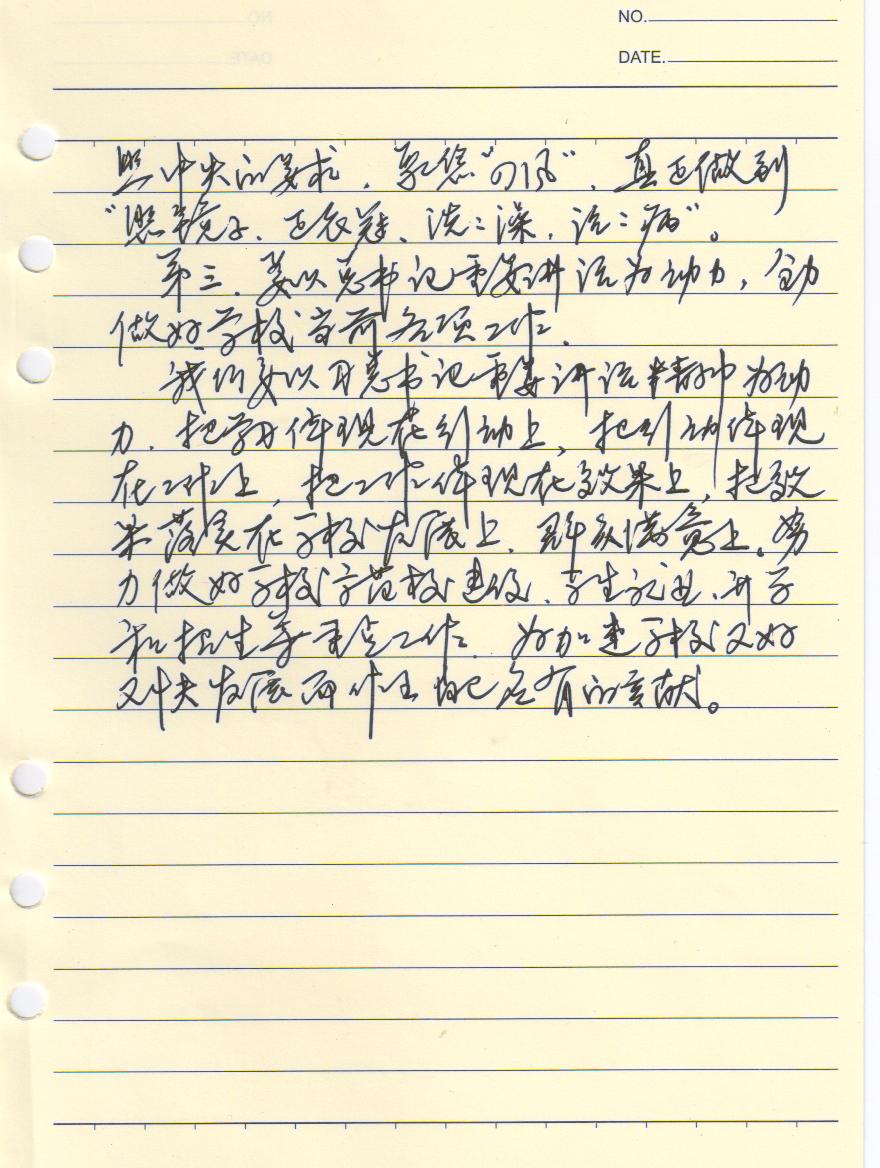 NO.
DATE.
照中央的要求，聚焦“四风”，真正做到
“照镜子、正衣冠、洗洗澡、治治病”。
第三、要以总书记重要讲话为动力，全力
做好学校当前各项工作。
我们要以习总书记重要讲话精神为动
力，把学习体现在行动上，把行动体现
在工作上，把工作体现在效果上，把效
果落实在学校发展上、群众满意上。努
力做好学校示范校建设、学生就业、升学
和招生等重点工作，为加速学校又好
又快发展而作出自己应有的贡献。